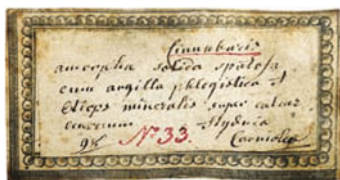 Cinnabaris
amorpha solida spatosa
cum argilla phlogistica et
mineralis super calcar.
Hydria
N° 33. Carniolia